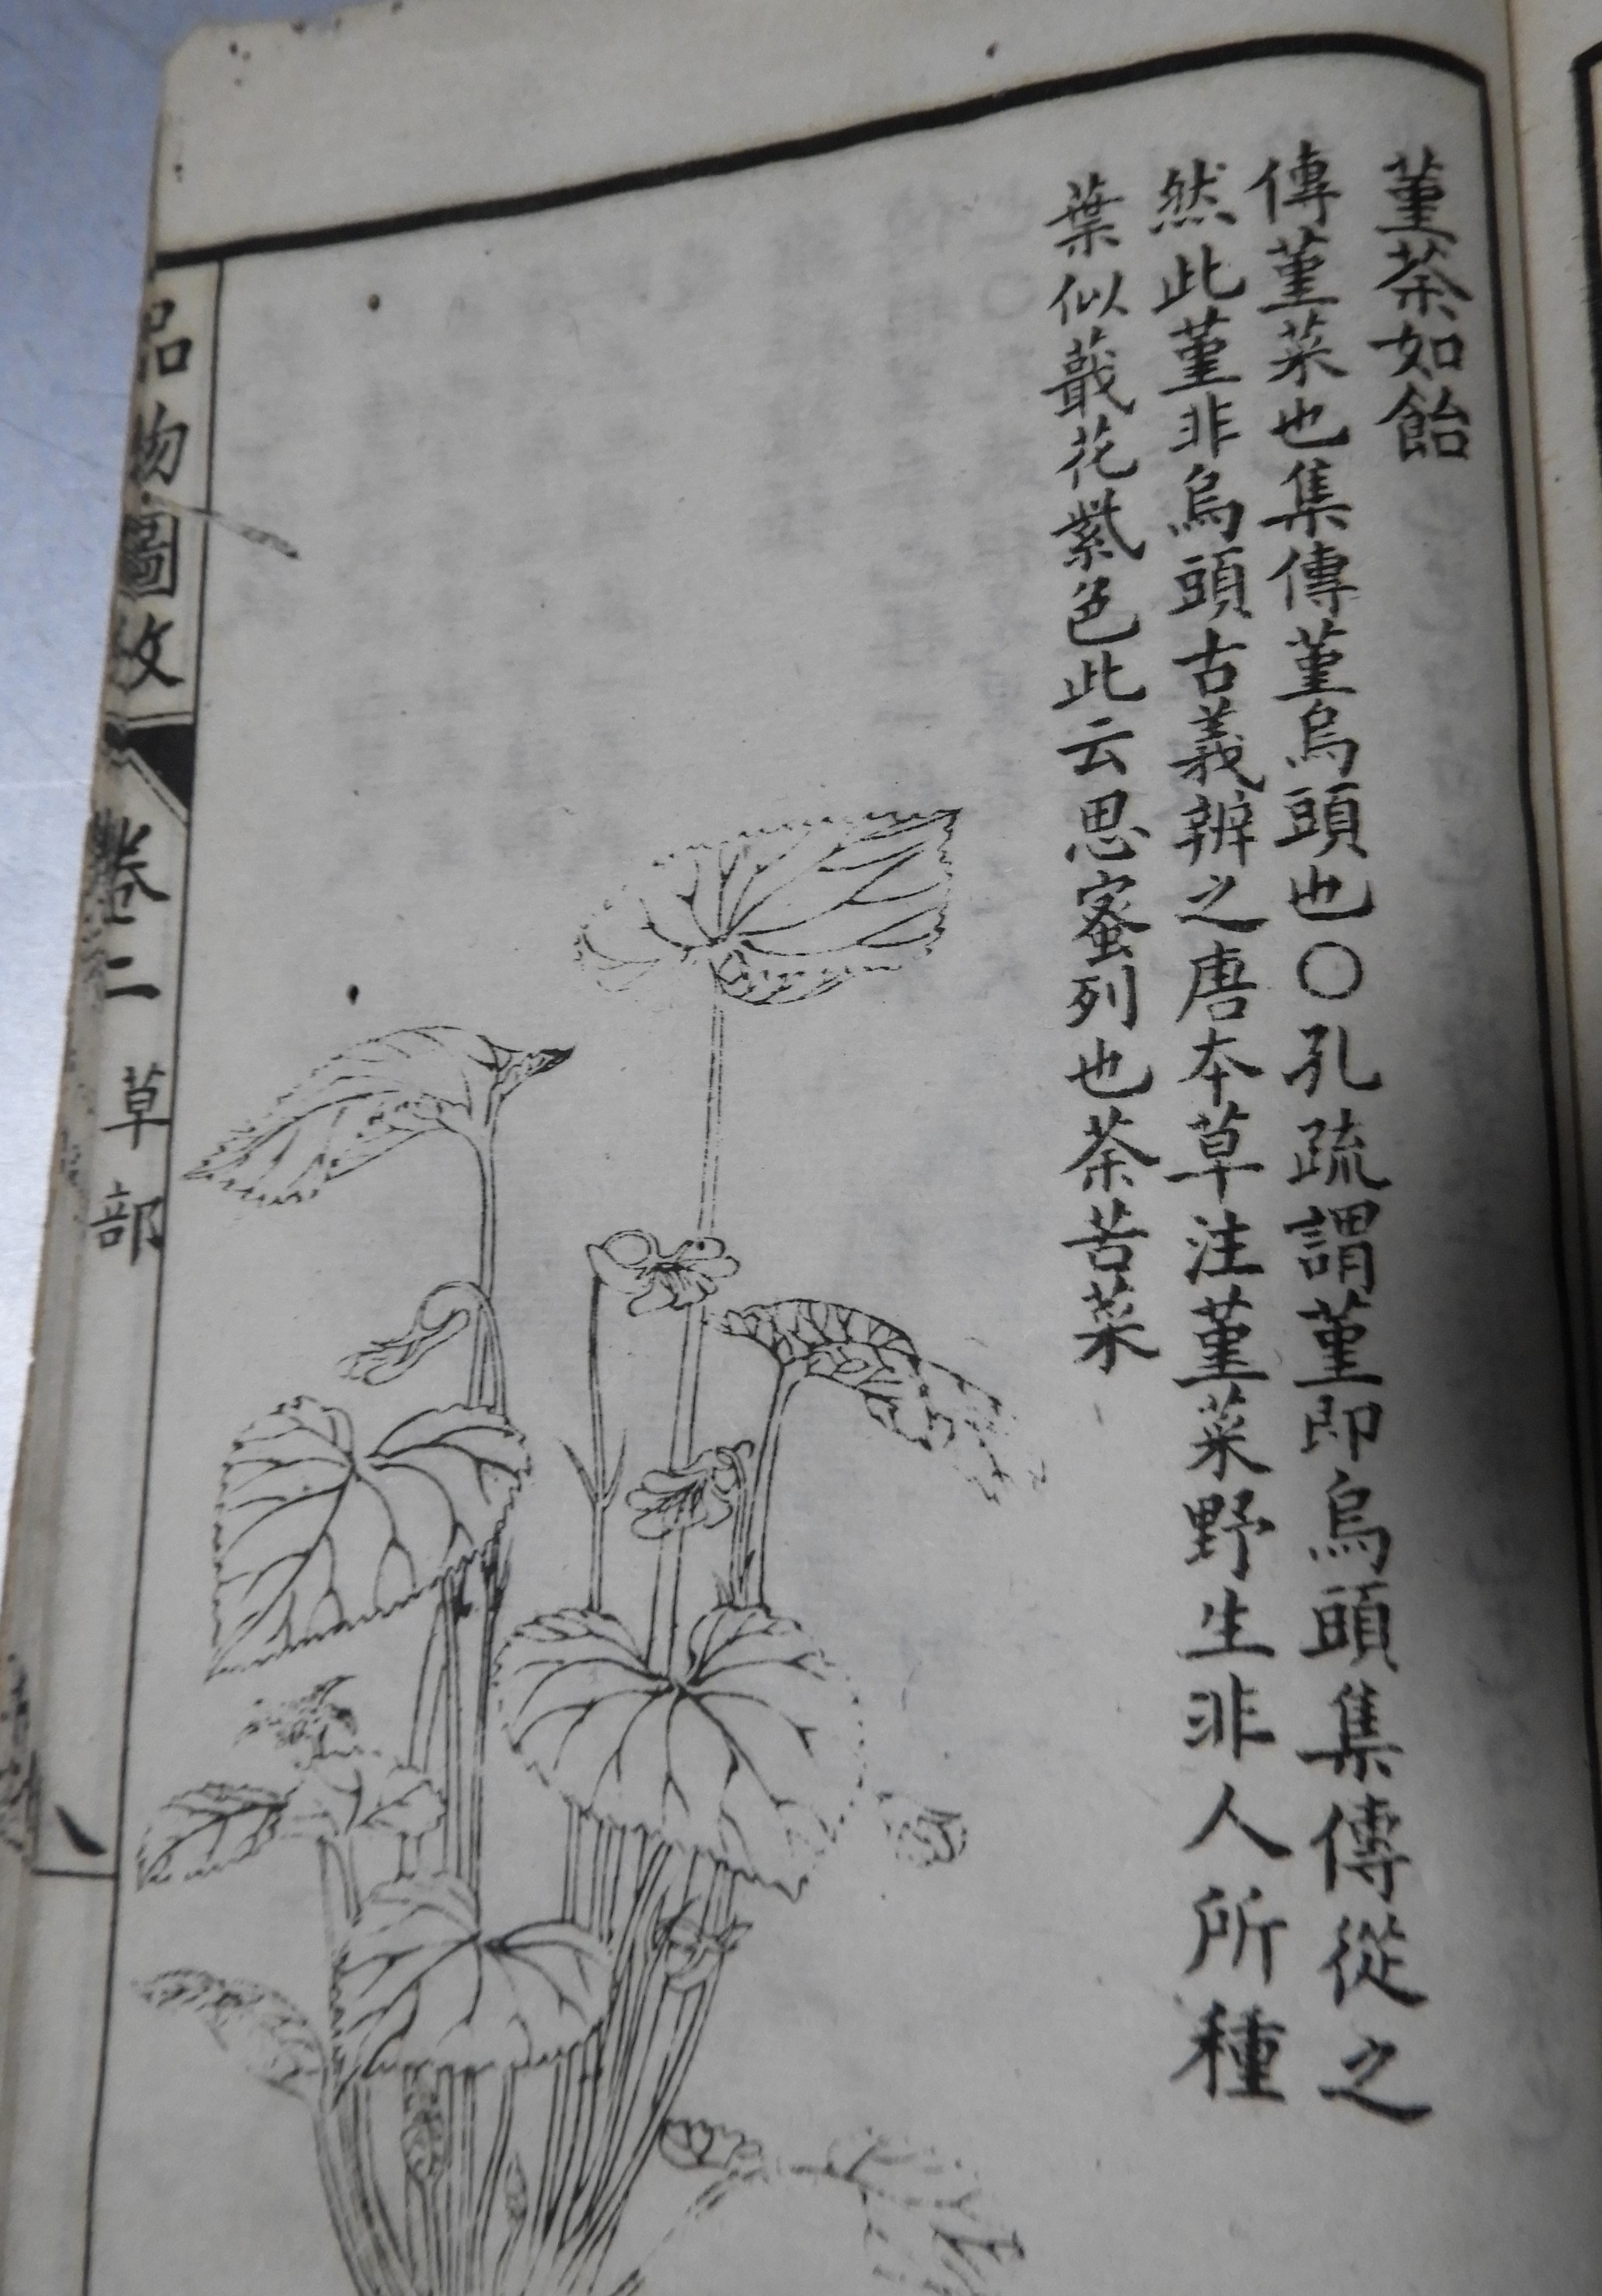 堇荼如飴
傳堇菜也集傳堇烏頭也〇孔疏謂堇即烏頭集傳從之
然此堇非烏頭古義辨之唐本草注堇菜野生非人所種
葉似蕺花紫色此云思蜜列也荼苦菜
品物圖攷 卷二 草部